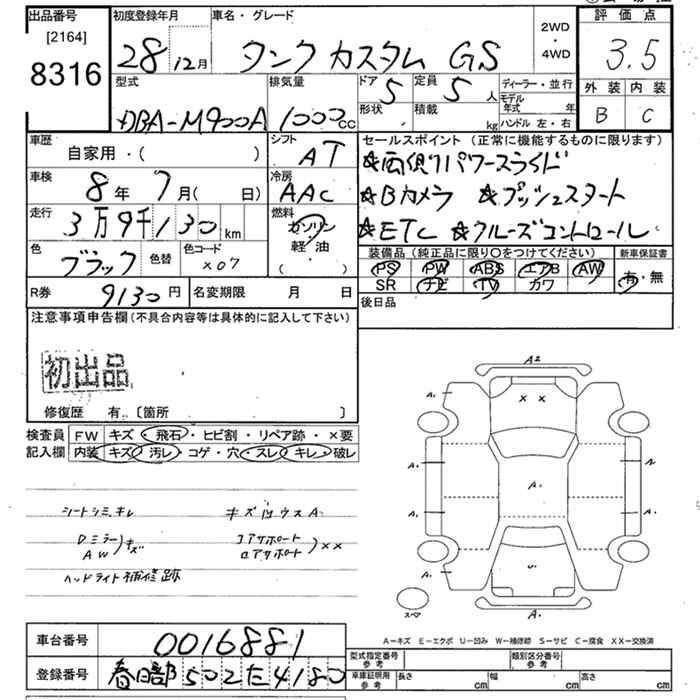 出品番号
[2164]
8316
初度登録年月
28 12月
車名・グレード
タンク カスタム GS
2WD
・
4WD
評価点
3.5
外装 内装
B C
型式
DBA-M900A
排気量
1000cc
ドア 5
形状
定員 5人
積載 kg
ディーラー・並行
モデル年式 年
ハンドル 左・右
車歴
自家用・( )
シフト
AT
車検
8年 7月( 日)
冷房
AAC
走行
3万9千130km
燃料
ガソリン
軽・油
( )
色
ブラック
色替
色コード
X07
R券
9130円
名変期限 月 日
セールスポイント (正常に機能するものに限ります)
☆両側パワースライド
☆Bカメラ ☆プッシュスタート
☆ETC ☆クルーズコントロール
装備品 (純正品に限り○をつけてください)
新車保証書
PS PW ABS エアB AW
SR ナビ TV カワ
有・無
後日品
注意事項申告欄(不具合内容等は具体的に記入して下さい)
初出品
修復歴 有.〔箇所 〕
検査員記入欄
FW キズ・飛石・ヒビ割・リペア跡・×要
内装 キズ・汚レ・コゲ・穴・スレ・キレ・破レ
シートシミキレ
キズ凹ウスA
Dミラー
AW
)キズ
コアサポート
ロアサポート
)××
ヘッドライト補修跡
A2
× ×
A.
A.
A.
A.
A.
A.
A.
U.
A.
スペア
A-キズ E-エクボ U-凹み W-補修跡 S-サビ C-腐食 XX-交換済
車台番号
0016881
登録番号
春日部 502 た 4180
型式指定番号
参考
類別区分番号
参考
車庫証明用
参考
長さ cm
幅 cm
高さ cm